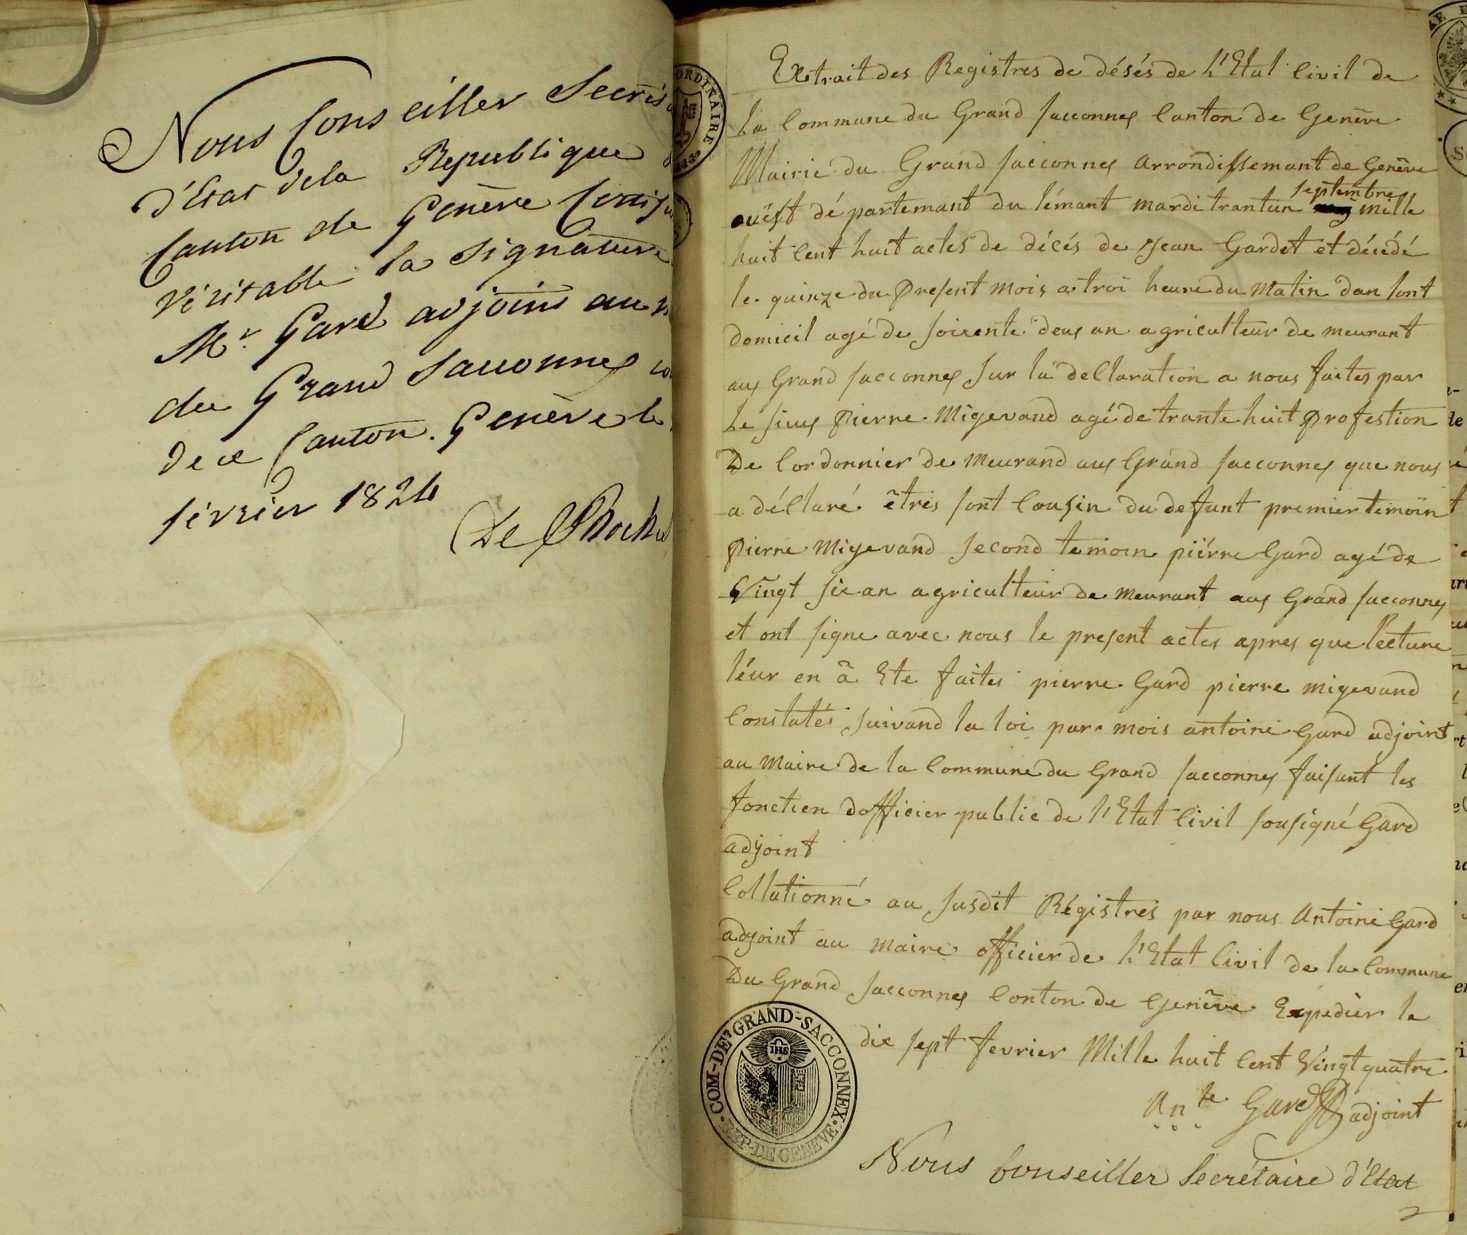 Nous Conseiller Secrét
d'État dela Republique
Canton de Genève Certif
véritable la Signature
Mr. Gard adjoint au
du Grand Saconnex
de ce Canton. Genève le
février 1824
De Roches
ORDINAIRE
Extrait des Registres de désés de l'Etat Civil de
La Commune du Grand Sacconnex Canton de Genêve
Mairie du Grand Sacconnex arrondissemant de Genêve
ouëst départemant du lémant mardi trantun septembre mille
huit Cent huit actes de décés de Jean Gardet et décédé
le quinze du present mois a troi heure du Matin dan sont
domicil agé de soisente deux an agriculteur de meurant
aux Grand Sacconnex sur la declaration a nous faites par
Le sieur Pierre Migevand agé de trante huit Profestion
De Cordonnier de Meurand aux Grand Sacconnex que nous
a déClaré êtres sont Cousin du defunt premier temoin
Pierre Migevand second temoin piérre Gard agé de
Vingt six an agriculteur de Meurant aux Grand Sacconnex
et ont signe avec nous le present actes apres que lecture
léur en à Ete faites pierre Gard pierre migevand
Constatés suivand la loi par mois antoine Gard adjoint
au Maire de la Commune du Grand Sacconnex faisant les
fonction dofficier public de l'Etat Civil sousigné Gard
adjoint
Collationné au susdit Régistres par nous Antoine Gard
adjoint au maire officier de l'Etat Civil de la Commune
Du Grand Sacconnex Conton de Genêve Expedier le
dix sept fevrier Mille huit Cent Vingt quatre
Ante Gard adjoint
COM-DE-GRAND-SACCONNEX
REP-DE GENEVE
IHS
Nous Conseiller Secrétaire d'Etat